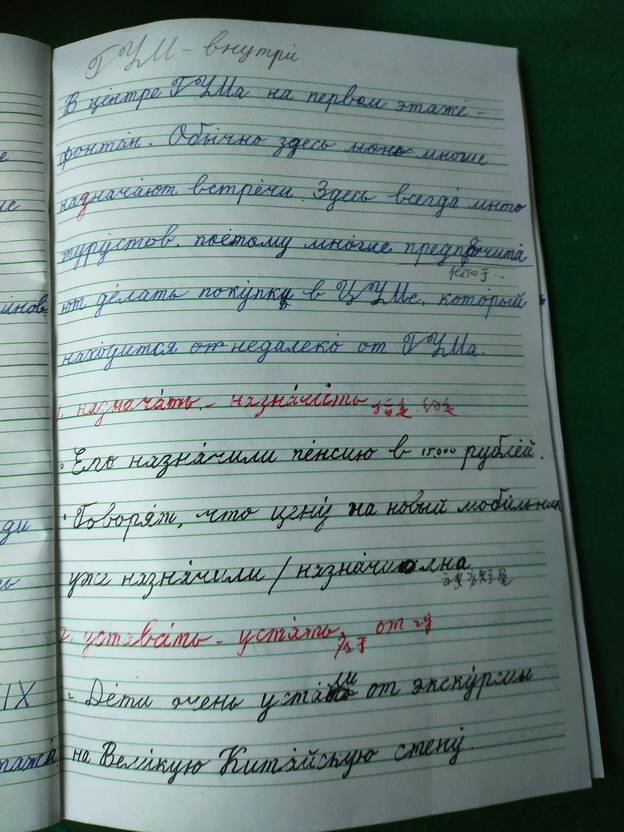 ГУМ - внутри́
В це́нтре ГУМа на первом этаже́ -
фонта́н. Обы́чно здесь моно многие
назнача́ют встре́чи. Здесь всегда́ много
тури́стов. поэ́тому мно́гие предпочита́
ют де́лать поку́пку в ЦУМе, кото́рый
нахо́дится от недалеко́ от ГУМа.
1. назнача́ть - назна́чить 指定.约定
• Его назна́чили пе́нсию в 15000 рубле́й.
• Говоря́т, что цену́ на новый моби́льник
уже назна́чили /
2. устава́ть - уста́ть от чего
- Де́ти очень уста́ли от экску́рсии
на Вели́кую Кита́йскую стену́.
е
ие
инов
ди
ь
IX